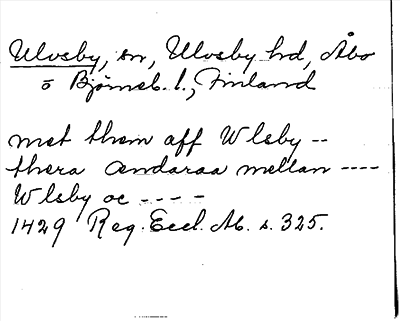 Ulvsby, sn, Ulvsby hd, Åbo
o Björneb. l., Finland
met them aff Wlsby --
thera ændaraa mellan ----
Wlsby oc ----
1429 Reg. Eccl. Ab. s. 325.